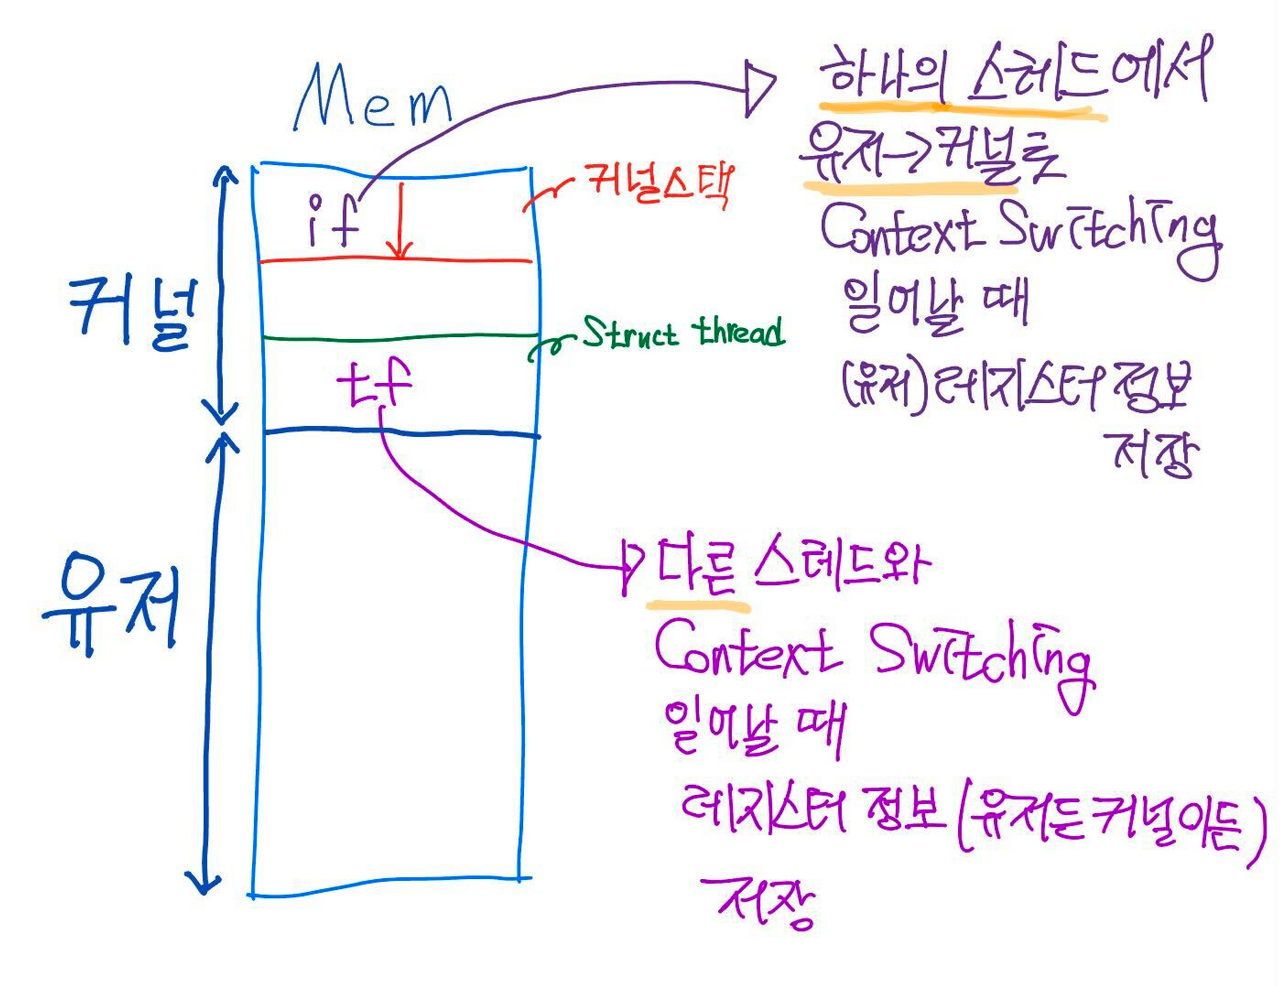 Mem
하나의 스레드에서
유저→커널로
Context Switching
일어날 때
(유저)레지스터 정보
저장
if
커널스택
커널
Struct thread
tf
유저
다른 스레드와
Context Switching
일어날 때
레지스터 정보(유저든커널이든)
저장